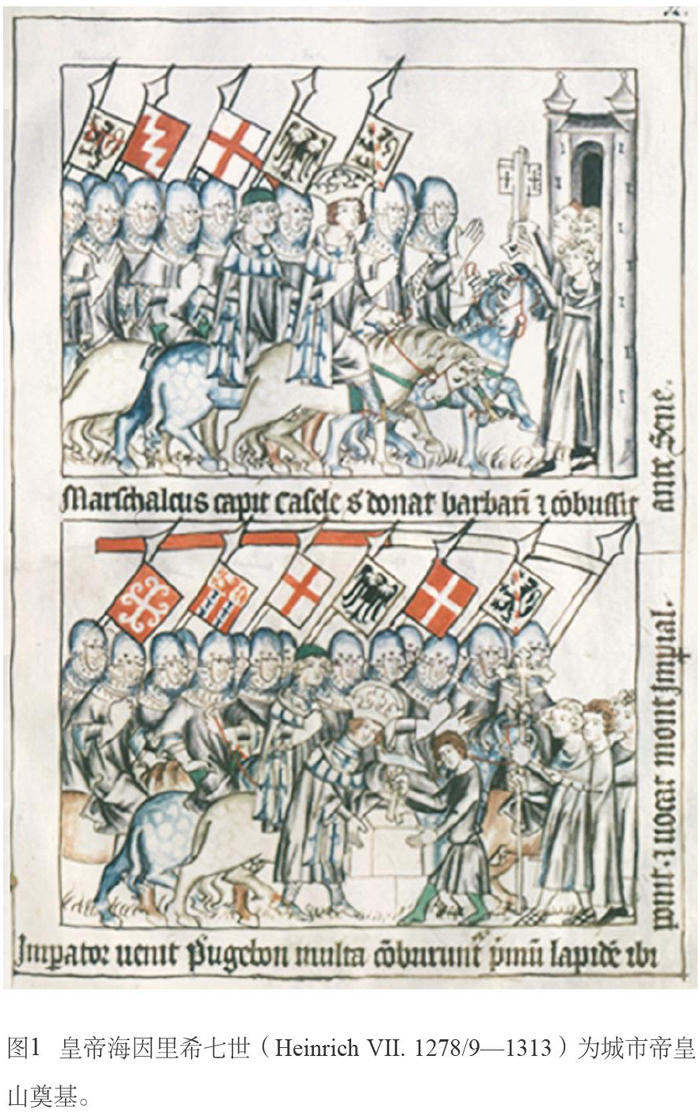 34.
Marschalcus capit Casele s' donat barbari ⁊ cōbussit
ante Sene.
Imꝑator uenit Pugebon multa cōburunt p̄mū lapidē ibi
ponit. ⁊ uocat mont Imꝑial.
图1 皇帝海因里希七世（Heinrich VII. 1278/9—1313）为城市帝皇
山奠基。